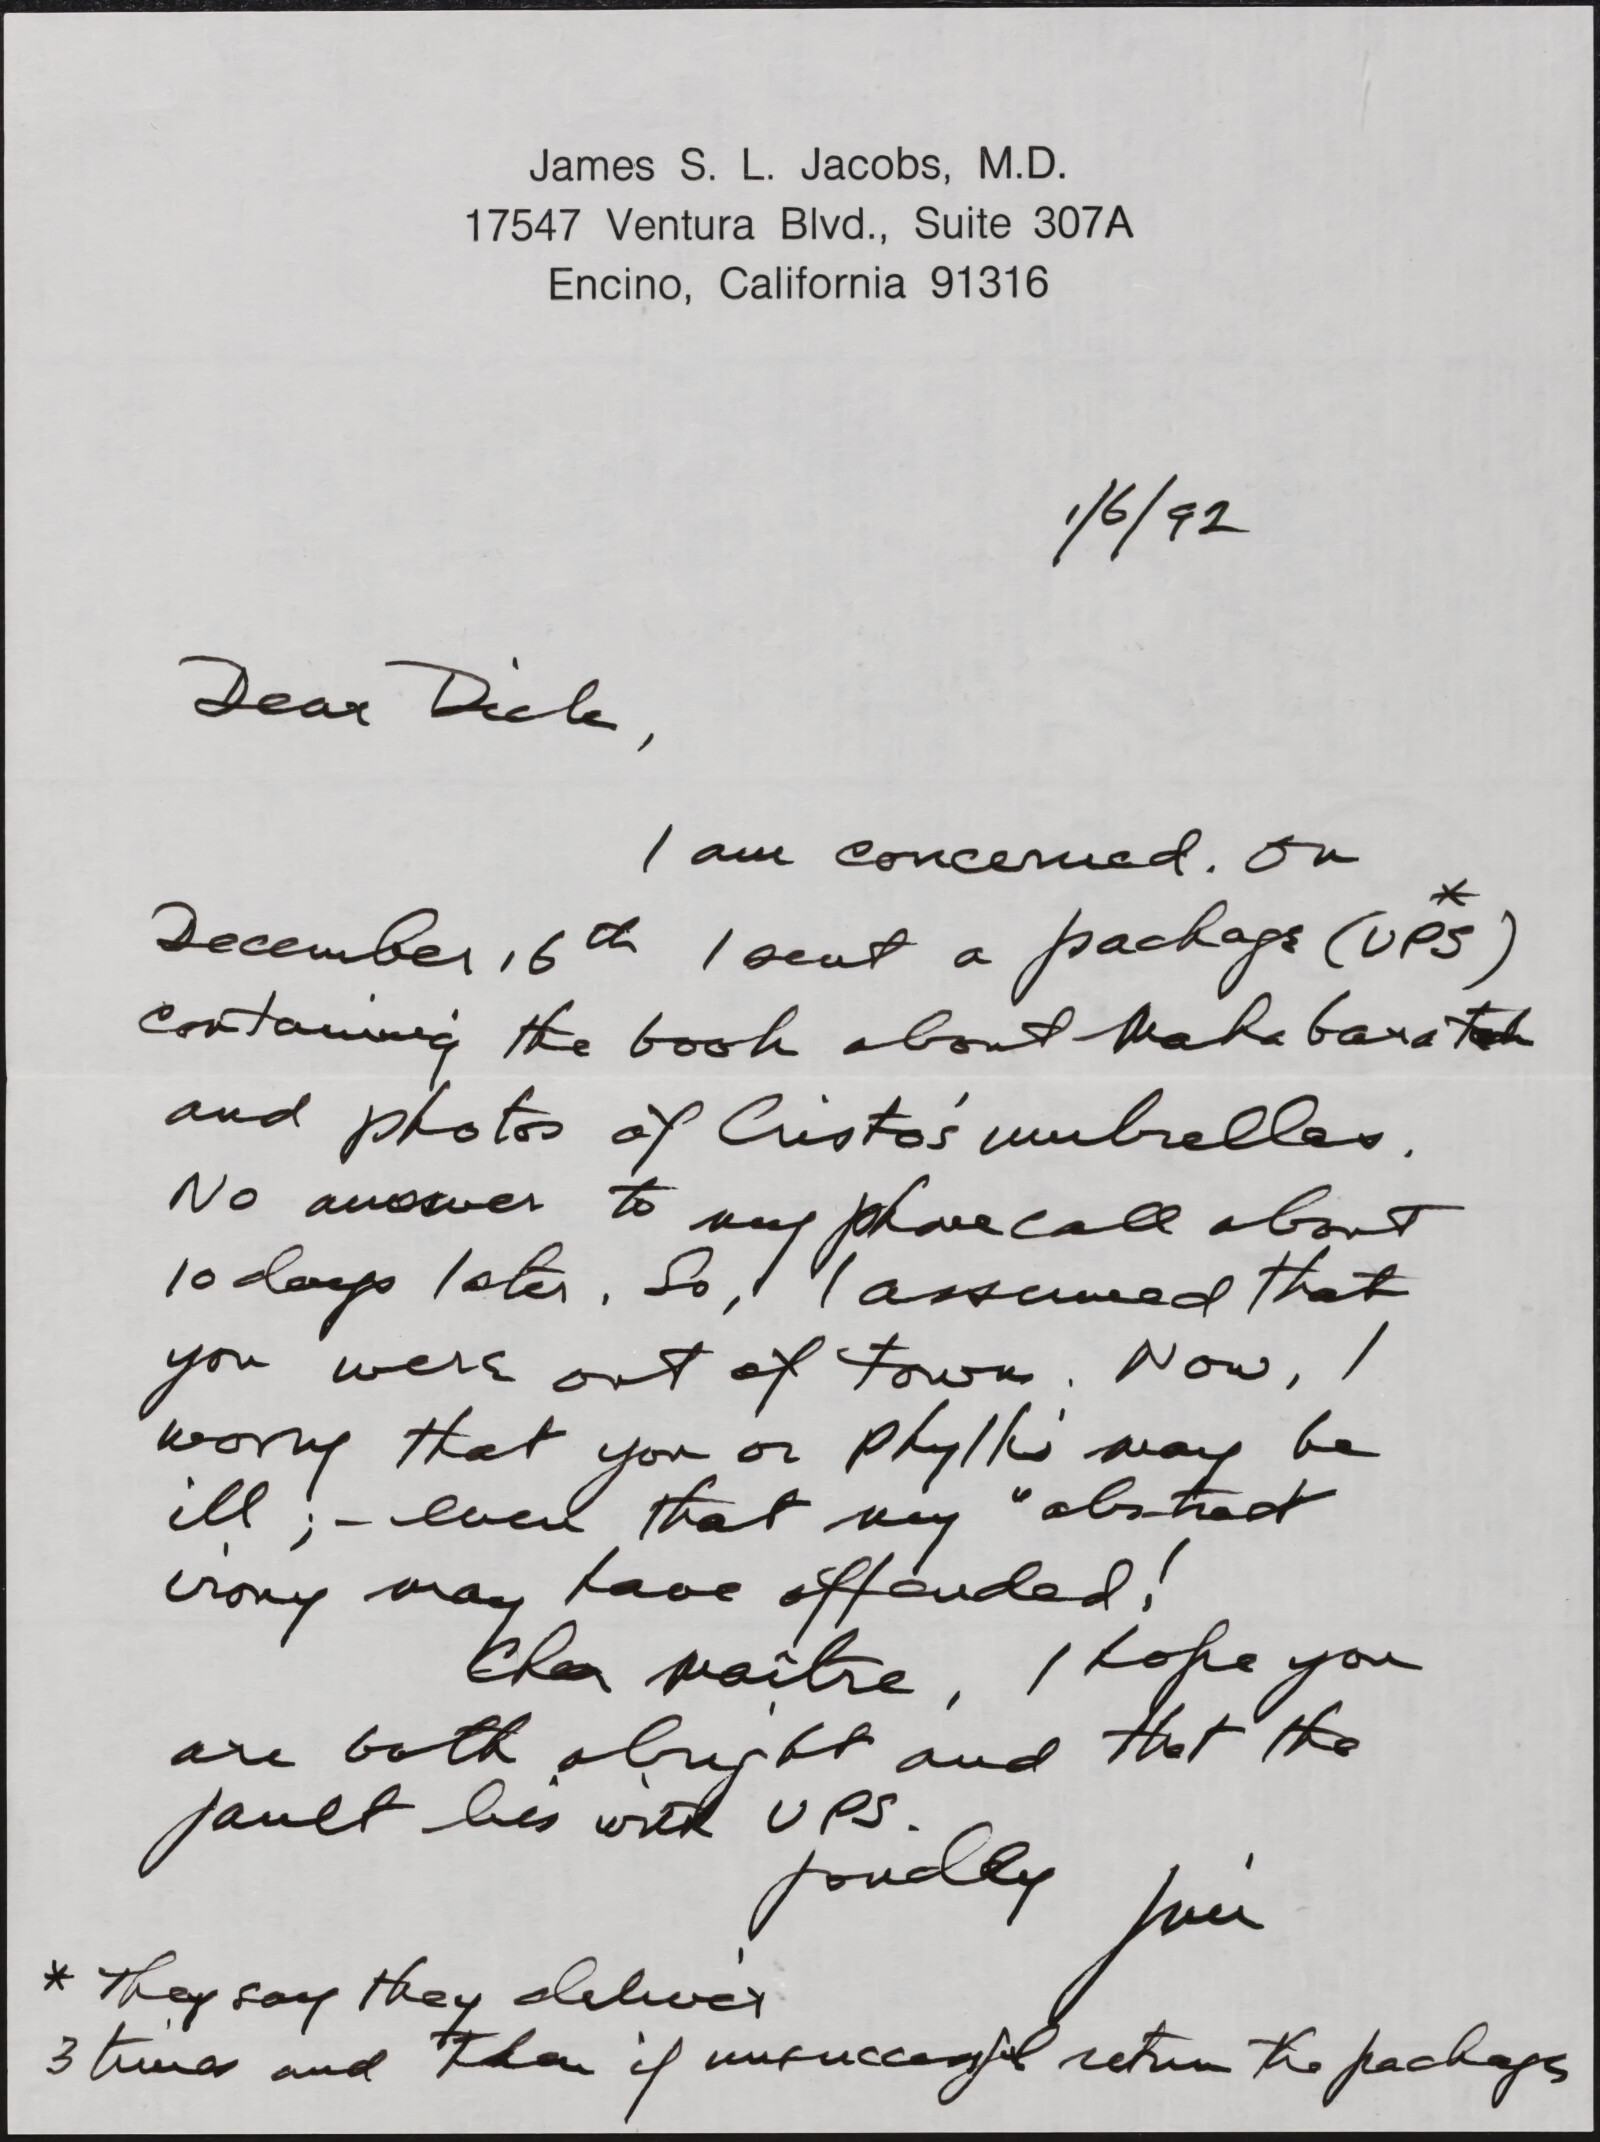 James S. L. Jacobs, M.D.
17547 Ventura Blvd., Suite 307A
Encino, California 91316
1/6/92
Dear Dick,
I am concerned. On
December 16th I sent a package (UPS*)
containing the book about Mahabaratah
and photos of Cristo's umbrellas.
No answer to my phone call about
10 days later. So, I assumed that
you were out of town. Now, I
worry that you or Phyllis may be
ill; - even that my "abstract
irony may have offended!
Cher maître, I hope you
are both alright and that the
fault lies with UPS.
fondly Jim
* They say they deliver
3 times and then if unsuccessful return the package